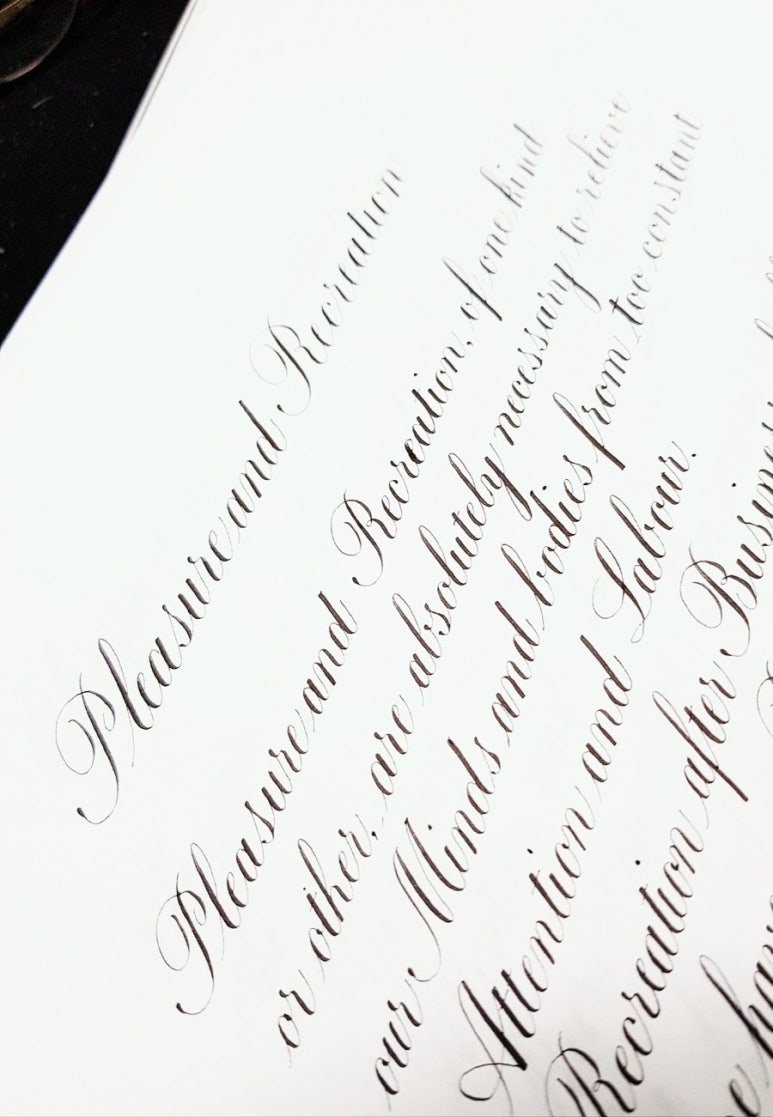 Pleasure and Recreation
Pleasure and Recreation, of one kind
or other, are absolutely necessary to relieve
our Minds and bodies from too constant
Attention and Labour.
Recreation after Business